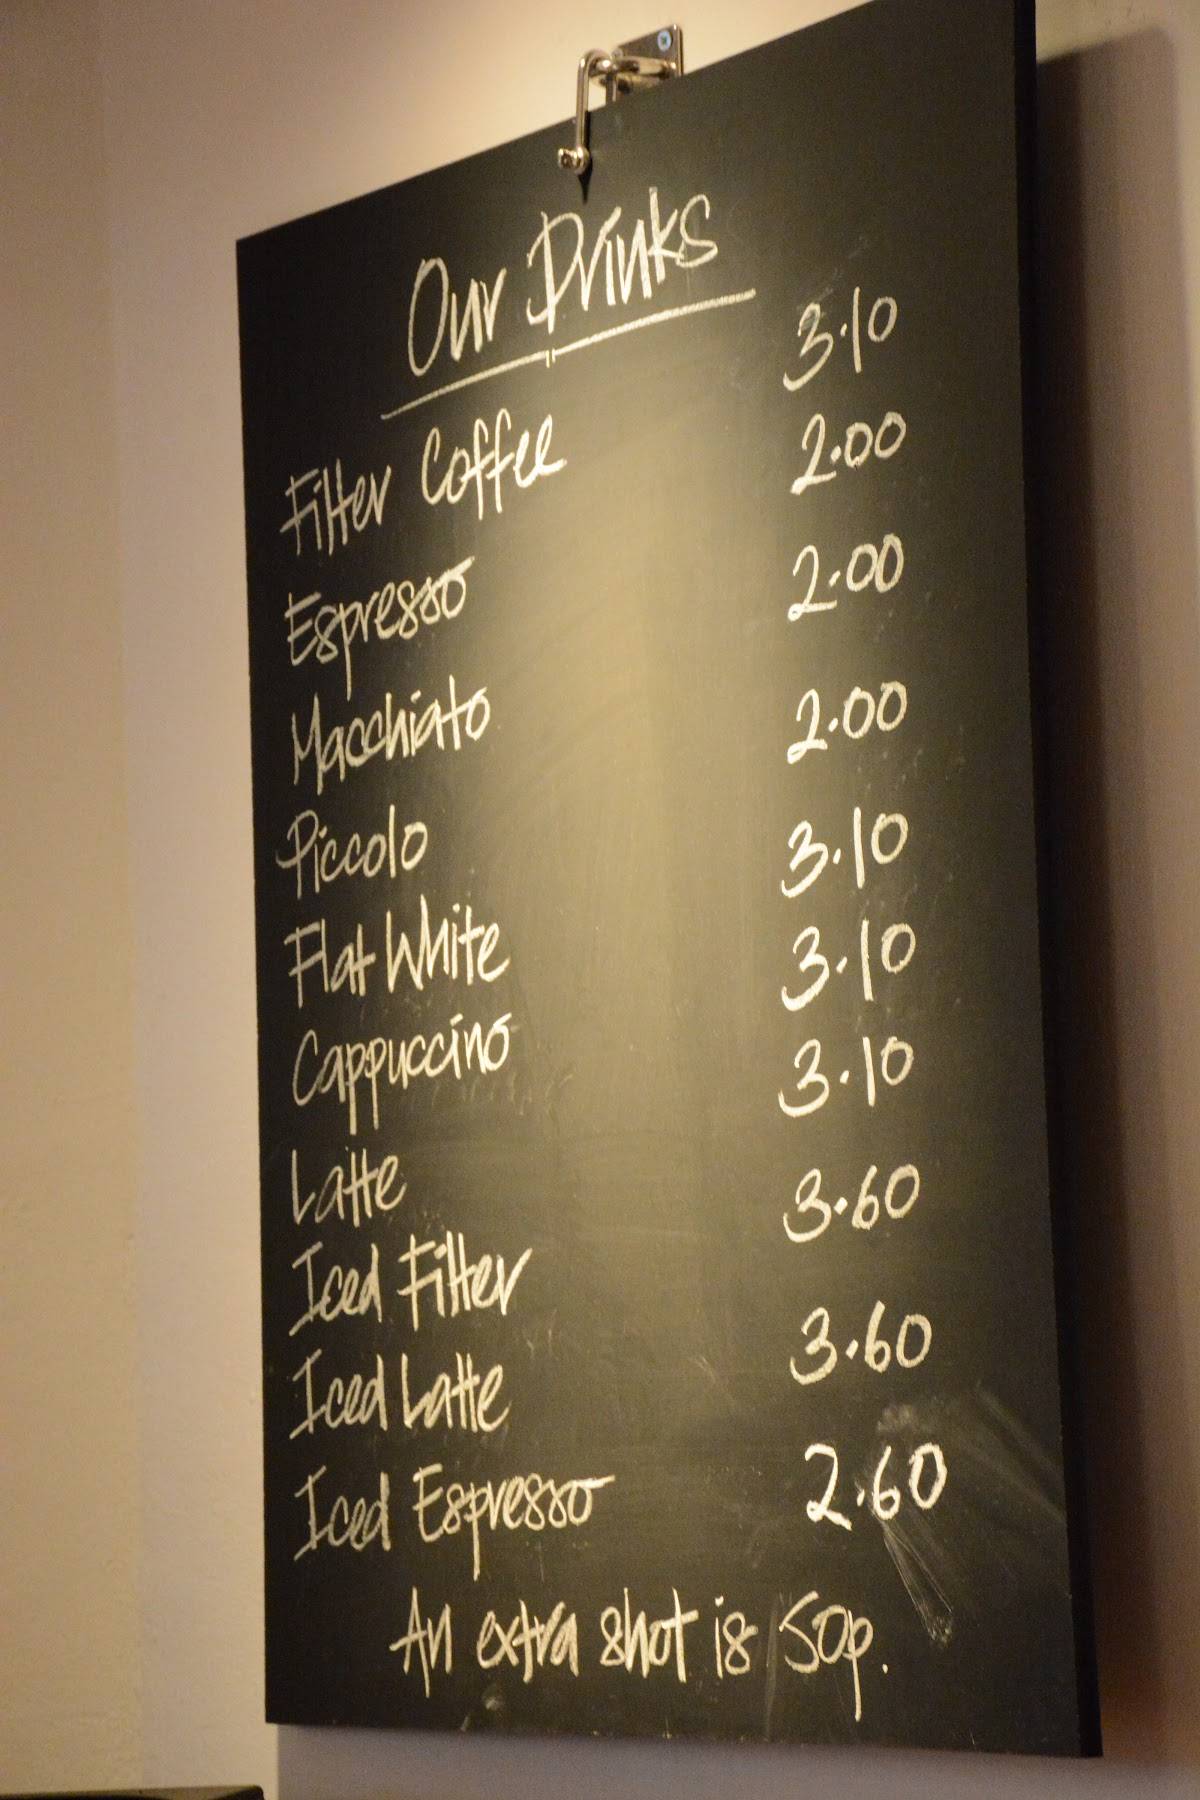 Our Drinks
Filter Coffee 3.10
Espresso 2.00
Macchiato 2.00
Piccolo 2.00
Flat White 3.10
Cappuccino 3.10
Latte 3.10
Iced Filter 3.60
Iced Latte 3.60
Iced Espresso 2.60
An extra shot is 50p.